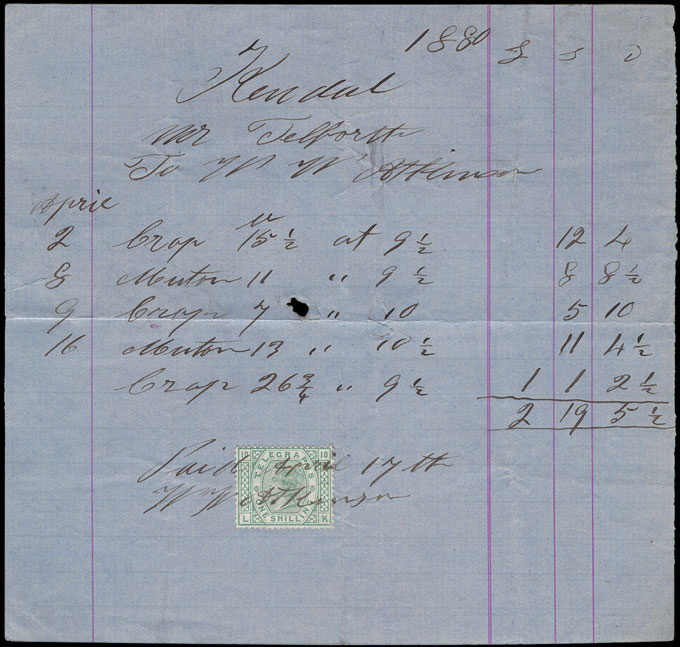 1880 £ s D
Kendal
mr Telforth
To W W Atkinson
April
2 Crop 15 ½ at 9 ½ 12 4
8 Muton 11 " 9 ½ 8 8 ½
9 Crop 7 " 10 5 10
16 Muton 13 " 10 ½ 11 4 ½
Crop 26 ¾ " 9 ½ 1 1 2 ½
2 19 5 ½
Paid April 17th
W W Atkinson
10 TELEGRAPHS 10
ONE SHILLING
L K